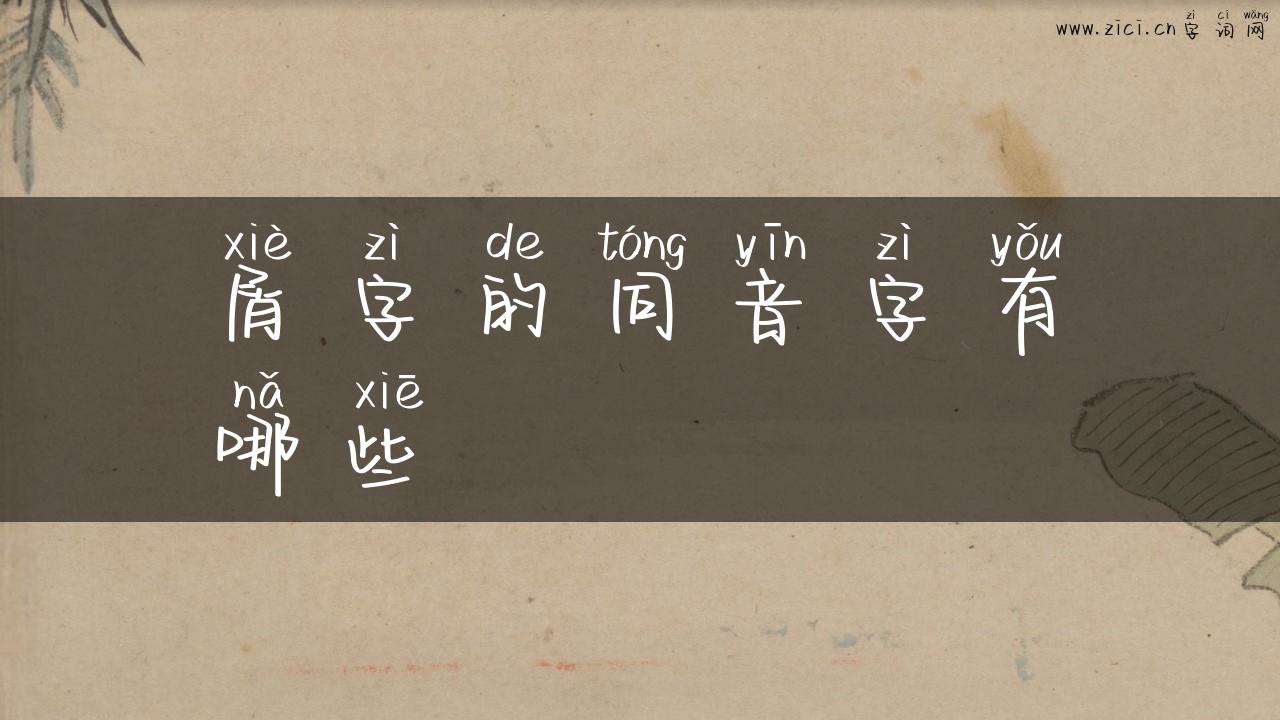 zì cí wǎng
www.zici.cn 字词网
xiè zì de tóng yīn zì yǒu
屑字的同音字有
nǎ xiē
哪些